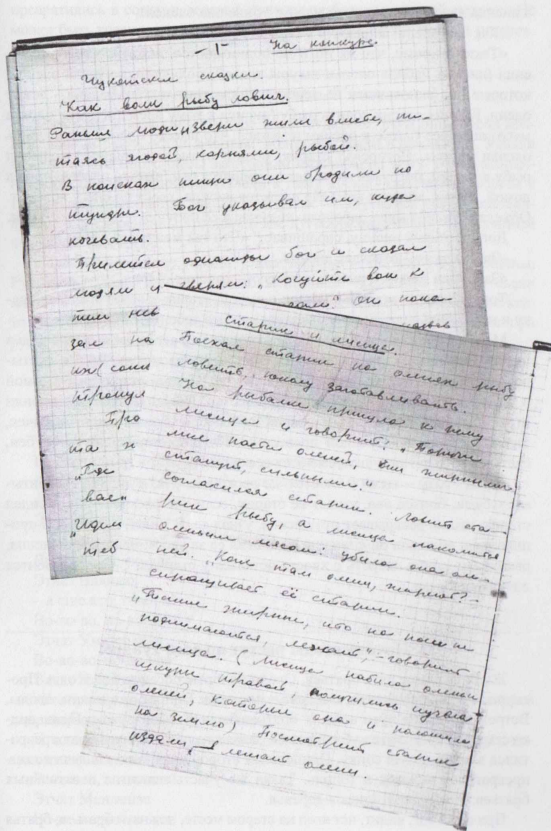 – 1 –
На конкурс.
Чукотские сказки.
Как волк рыбу ловил.
Раньше люди и звери жили вместе, пи-
таясь ягодой, корнями, рыбой.
В поисках пищи они бродили по
тундре. Бог указывал им, куда
кочевать.
Прилетел однажды бог и сказал
людям и зверям: „Кочуйте вон к
тем нев
он пока-
зал на
их (сани
тронул
Про
та н
„Где
вас"
„Идем
теб
Старик и лисица.
Поехал старик на оленях рыбу
ловить, юколу заготавливать.
На рыбалке пришла к нему
лисица и говорит: „Поручи
мне пасти оленей, они жирными
станут, сильными."
Согласился старик. Ловит ста-
рик рыбу, а лисица лакомится
оленьим мясом: убила она оле-
ней. „Как там олени, жиреют? –
спрашивает её старик.
„Такие жирные, что на ноги не
поднимаются, лежат", – говорит
лисица. (Лисица набила оленьи
шкуры травой, получились чучела
оленей, которых она и положила
на землю) Посмотрит старик
издали, – лежат олени.